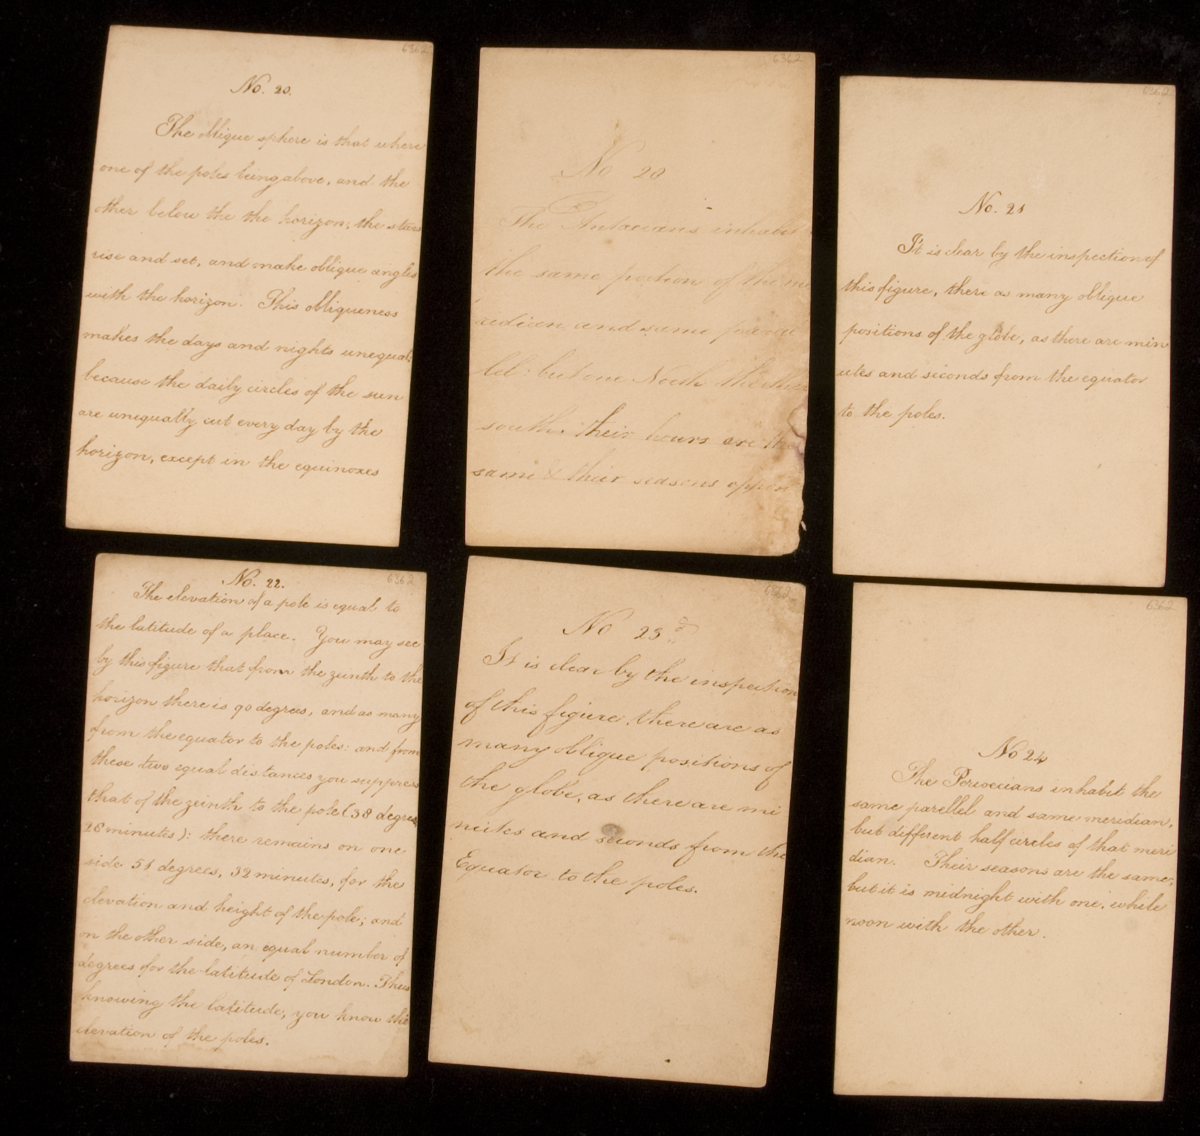 6362
No. 20.
The oblique sphere is that where
one of the poles being above, and the
other below the the horizon; the stars
rise and set, and make oblique angles
with the horizon. This obliqueness
makes the days and nights unequal:
because the daily circles of the sun
are unequally cut every day by the
horizon, except in the equinoxes
6362
No 20
The Antoecians inhabit
the same portion of the me
redian and same paral
lel: but one North the other
south. their hours are the
same & their seasons oppos
6362
No. 21
It is clear by the inspection of
this figure, there as many oblique
positions of the globe, as there are min
utes and seconds from the equator
to the poles.
6362
No. 22.
The elevation of a pole is equal to
the latitude of a place. You may see
by this figure that from the zenith to the
horizon there is 90 degrees, and as many
from the equator to the poles: and from
these two equal distances you suppress
that of the zenith to the pole (38 degrees
28 minutes): there remains on one
side 51 degrees, 32 minutes, for the
elevation and height of the pole; and
on the other side, an equal number of
degrees for the latitude of London. Thus
knowing the latitude, you know the
elevation of the poles.
6362
No 23d
It is clear by the inspection
of this figure, there are as
many oblique positions of
the globe, as there are mi
nutes and seconds from the
Equator to the poles.
6362
No 24
The Perioecians inhabit the
same parellel and same meridian,
but different half circles of that meri
dian. Their seasons are the same;
but it is midnight with one, while
noon with the other.